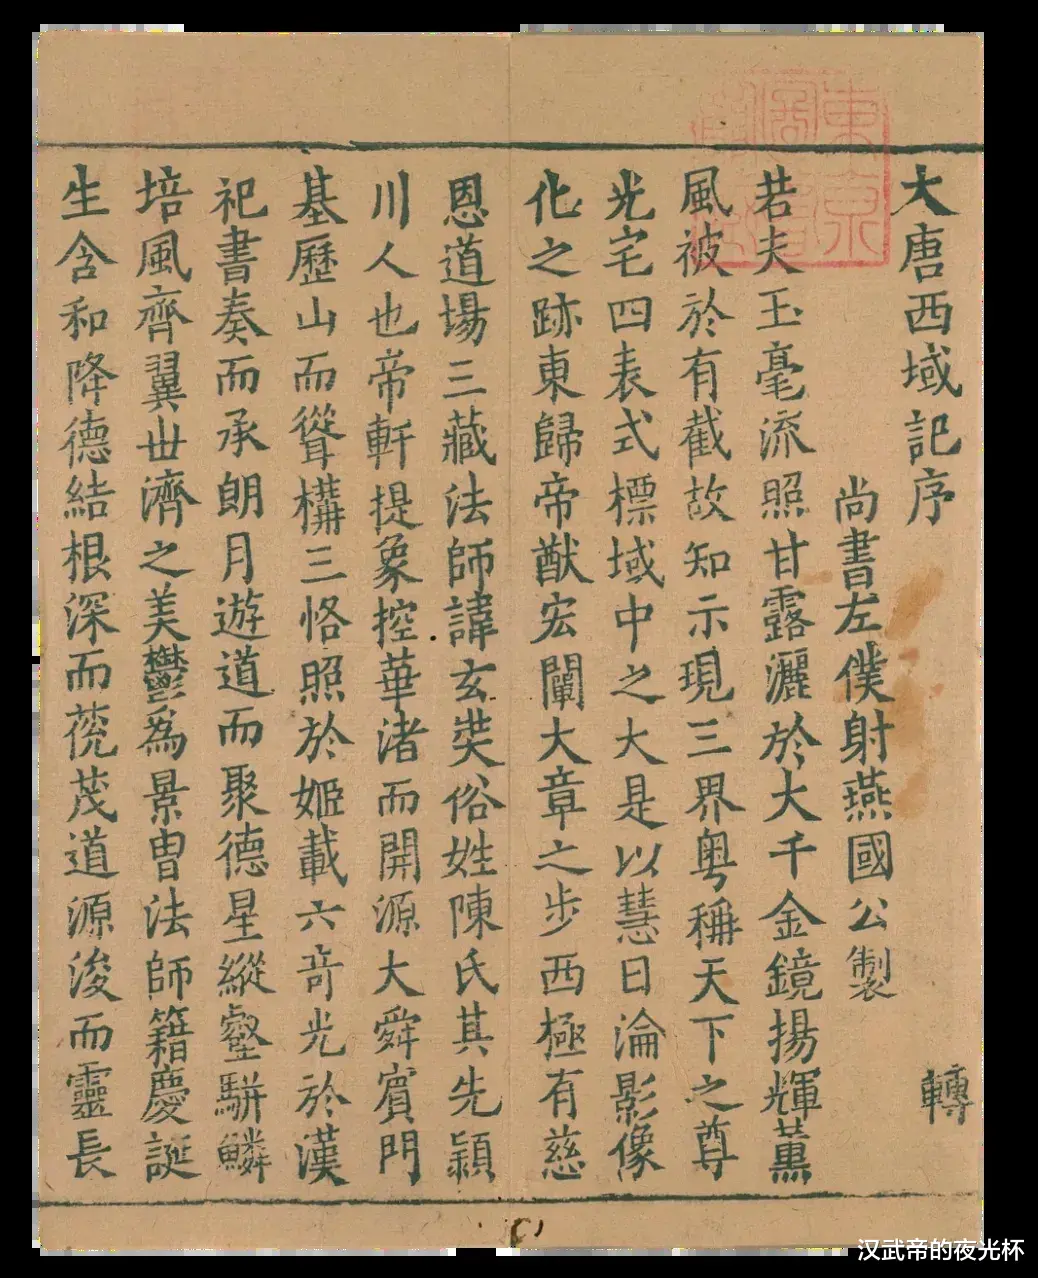 大唐西域記序
轉
尚書左僕射燕國公製
若夫玉毫流照甘露灑於大千金鏡揚輝薰
風被於有截故知示現三界粤稱天下之尊
光宅四表式標域中之大是以慧日淪影像
化之跡東歸帝猷宏闡大章之步西極有慈
恩道場三藏法師諱玄奘俗姓陳氏其先潁
川人也帝軒提象控華渚而開源大舜賓門
基歷山而聳構三恪照於姬載六奇光於漢
祀書奏而承朗月遊道而聚德星縱壑駢鱗
培風齊翼世濟之美鬱為景冑法師籍慶誕
生含和降德結根深而𦯔茂道源浚而靈長
東京
汉武帝的夜光杯